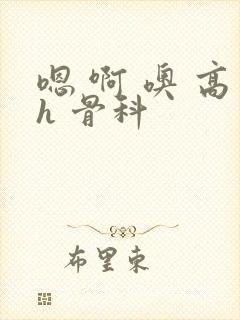 嗯 啊 噢 高
h 骨科
布里東